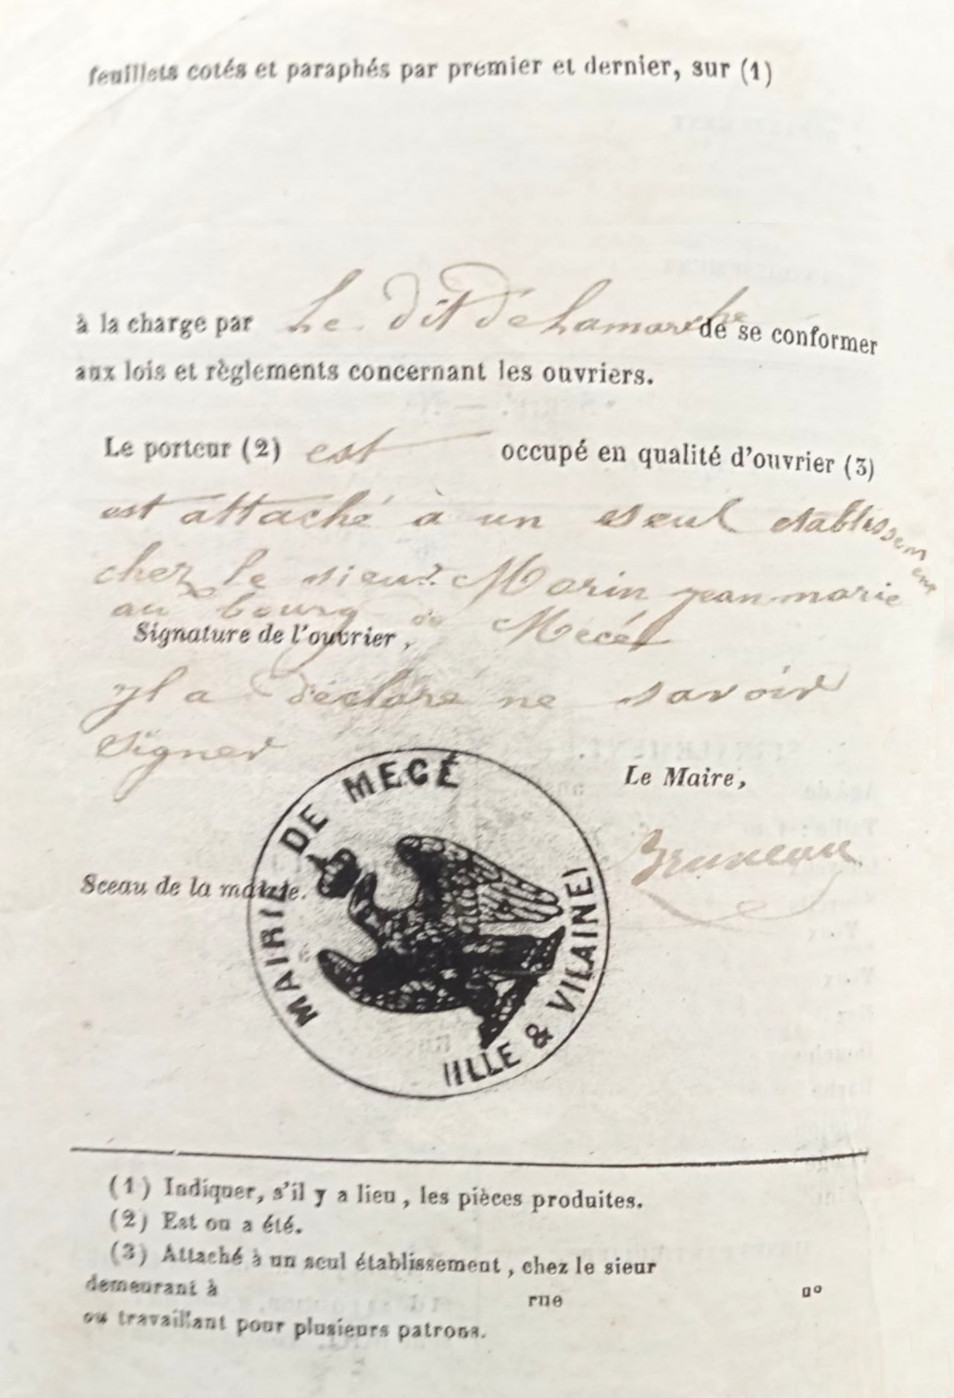 feuillets cotés et paraphés par premier et dernier, sur (1)
à la charge par Le dit Delamarche de se conformer
aux lois et règlements concernant les ouvriers.
Le porteur (2) est occupé en qualité d'ouvrier (3)
est attaché à un seul établissement
chez le sieur Morin jean-marie
au bourg de Mecé
Signature de l'ouvrier,
yl a déclaré ne savoir
signer
Le Maire,
Bruneau
Sceau de la mairie.
MAIRIE DE MECÉ
ILLE & VILAINE
(1) Indiquer, s'il y a lieu, les pièces produites.
(2) Est ou a été.
(3) Attaché à un seul établissement, chez le sieur
demeurant à rue nº
ou travaillant pour plusieurs patrons.